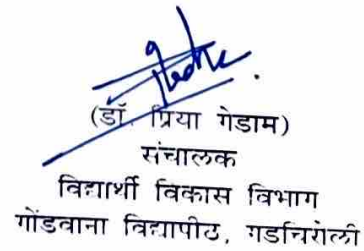 (डॉ. प्रिया गेडाम)
संचालक
विद्यार्थी विकास विभाग
गोंडवाना विद्यापीठ, गडचिरोली